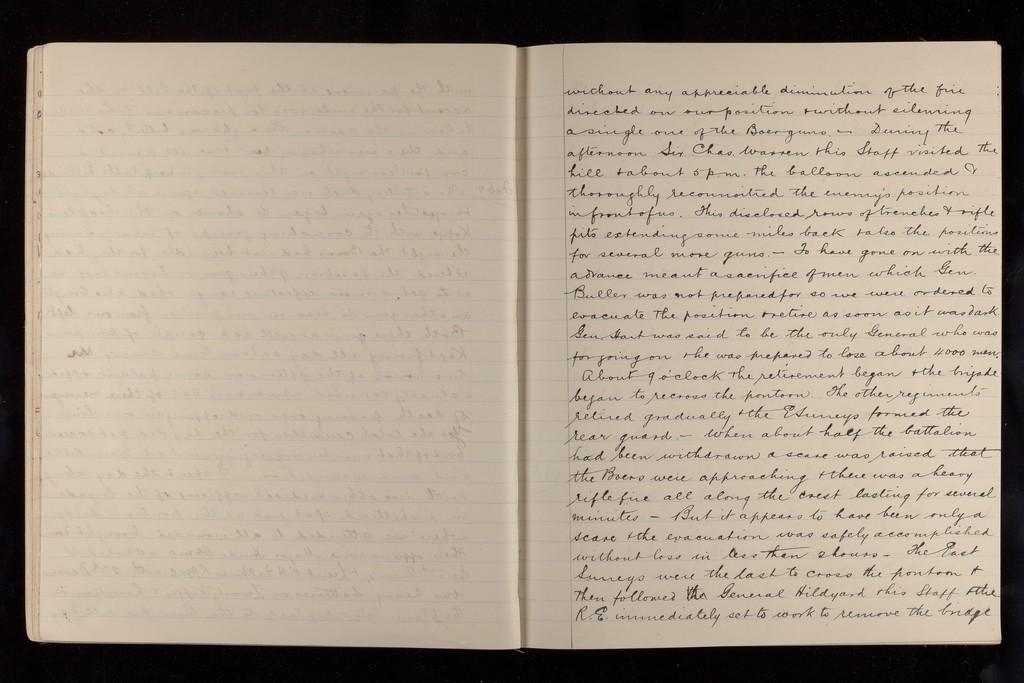 without any appreciable diminution of the fire
directed on our position & without silencing
a single one of the Boer guns. — During the
afternoon Sir Chas. Warren & his Staff visited the
hill & about 5 p.m. the balloon ascended &
thoroughly reconnoitred the enemy's position
in front of us. This disclosed rows of trenches & rifle
pits extending some miles back & also the positions
for several more guns. — To have gone on with the
advance meant a sacrifice of men which Gen.
Buller was not prepared for so we were ordered to
evacuate the position & retire as soon as it was dark
Gen. Hart was said to be the only General who was
for going on & he was prepared to lose about 4000 men.
About 9 o'clock the retirement began & the brigade
began to recross the pontoon. The other regiments
retired gradually & the E Surreys formed the
rear guard. — When about half the battalion
had been withdrawn a scare was raised that
the Boers were approaching & there was a heavy
rifle fire all along the crest lasting for several
minutes — But it appears to have been only a
scare & the evacuation was safely accomplished
without loss in less than 2 hours — The East
Surreys were the last to cross the pontoon &
then followed General Hildyard & his Staff & the
R.E. immediately set to work to remove the bridge